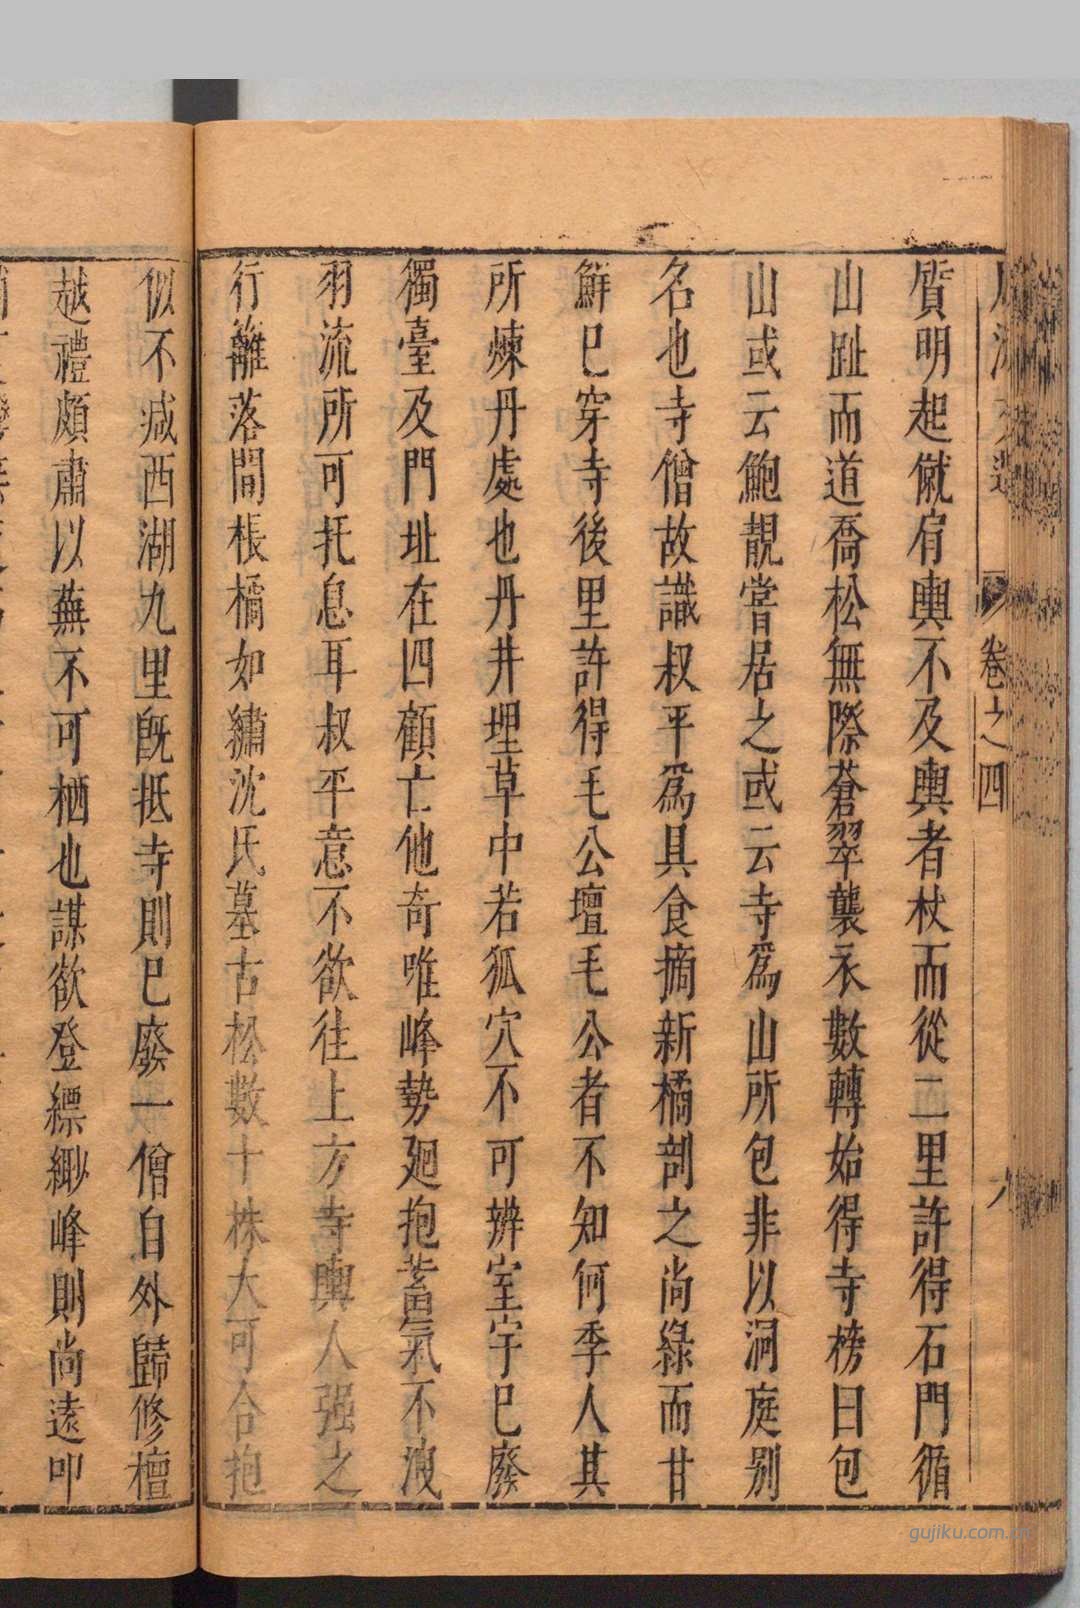 卷之四
質明起僦肩輿不及輿者杖而從二里許得石門循
山趾而道喬松無際蒼翠襲衣數轉始得寺榜曰包
山或云鮑靚嘗居之或云寺爲山所包非以洞庭别
名也寺僧故識叔平爲具食摘新橘剖之尚綠而甘
鮮已穿寺後里許得毛公壇毛公者不知何季人其
所煉丹處也丹井埋草中若狐穴不可辨室宇已廢
獨臺及門址在四顧亡他奇唯峰勢廻抱蓄氣不洩
羽流所可托息耳叔平意不欲往上方寺輿人强之
行籬落間棖橘如繡沈氏墓古松數十株大可合抱
似不减西湖九里旣抵寺則已廢一僧自外歸修檀
越禮頗肅以蕪不可栖也謀欲登縹緲峰則尚遠叩
gujiku.com